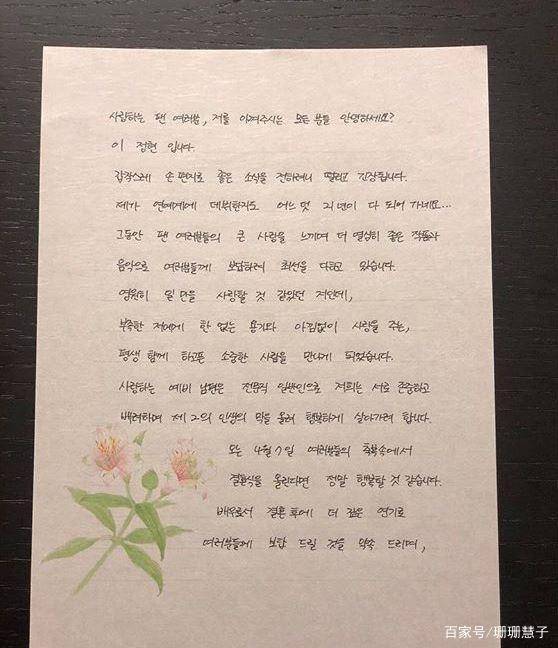 사랑하는 팬 여러분, 저를 아껴주시는 모든 분들 안녕하세요?
이 정현 입니다.
갑작스레 손 편지로 좋은 소식을 전하려니 떨리고 긴장됩니다.
제가 연예계에 데뷔한지도 어느 덧 21년이 다 되어 가네요...
그동안 팬 여러분들의 큰 사랑을 느끼며 더 열심히 좋은 작품과
음악으로 여러분들께 보답하려 최선을 다하고 있습니다.
영원히 일 만을 사랑할 것 같았던 저인데,
부족한 저에게 한 없는 용기와 아낌없이 사랑을 주는,
평생 함께 하고픈 소중한 사람을 만나게 되었습니다.
사랑하는 예비 남편은 전문직 일반인으로 저희는 서로 존중하고
배려하며 제 2의 인생의 막을 올려 행복하게 살아가려 합니다.
오는 4월 7일 여러분들의 축복속에서
결혼식을 올린다면 정말 행복할 것 같습니다.
배우로서 결혼 후에 더 깊은 연기로
여러분들께 보답 드릴 것을 약속 드리며,
百家号/珊珊慧子